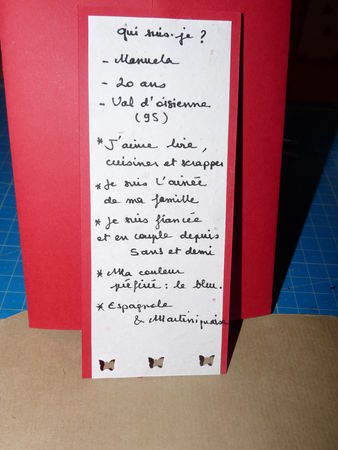 Qui suis-je ?
- Manuela
- 20 ans
- Val d'oisienne
(95)
* J'aime lire,
cuisiner et scrapper
* Je suis l'ainée
de ma famille
* Je suis fiancée
et en couple depuis
5ans et demi
* Ma couleur
préféré : le bleu.
* Espagnole
& Martiniquaise